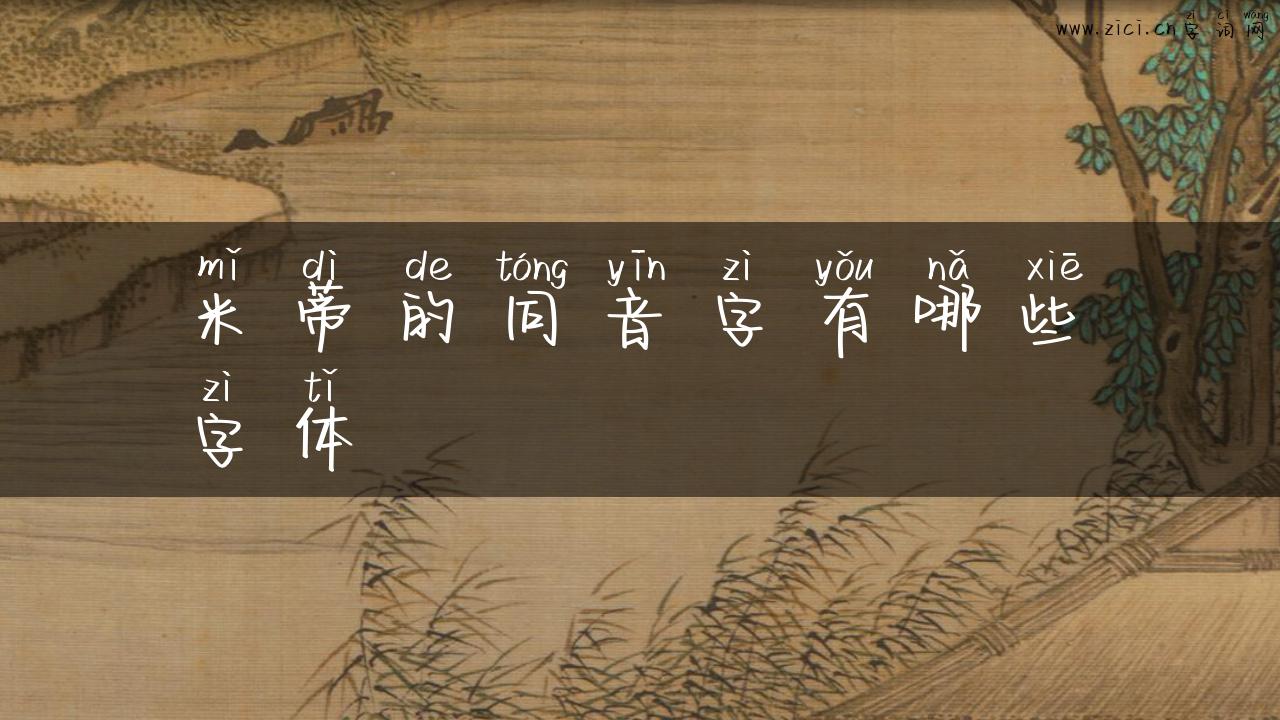 zì cí wǎng
www.zici.cn字词网
mǐ dì de tóng yīn zì yǒu nǎ xiē
米蒂的同音字有哪些
zì tǐ
字体